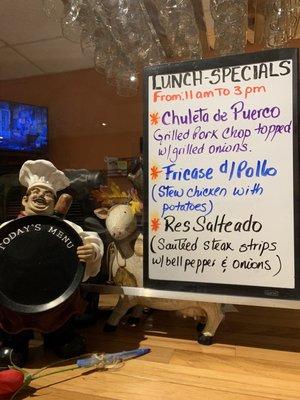 LUNCH-SPECIALS
From: 11am To 3 pm
* Chuleta de Puerco
Grilled Pork Chop topped
w/grilled onions.
* Fricase d/Pollo
(Stew chicken with
potatoes)
* Res Salteado
(Sautéed steak strips
w/bell pepper & onions)
TODAY'S MENU